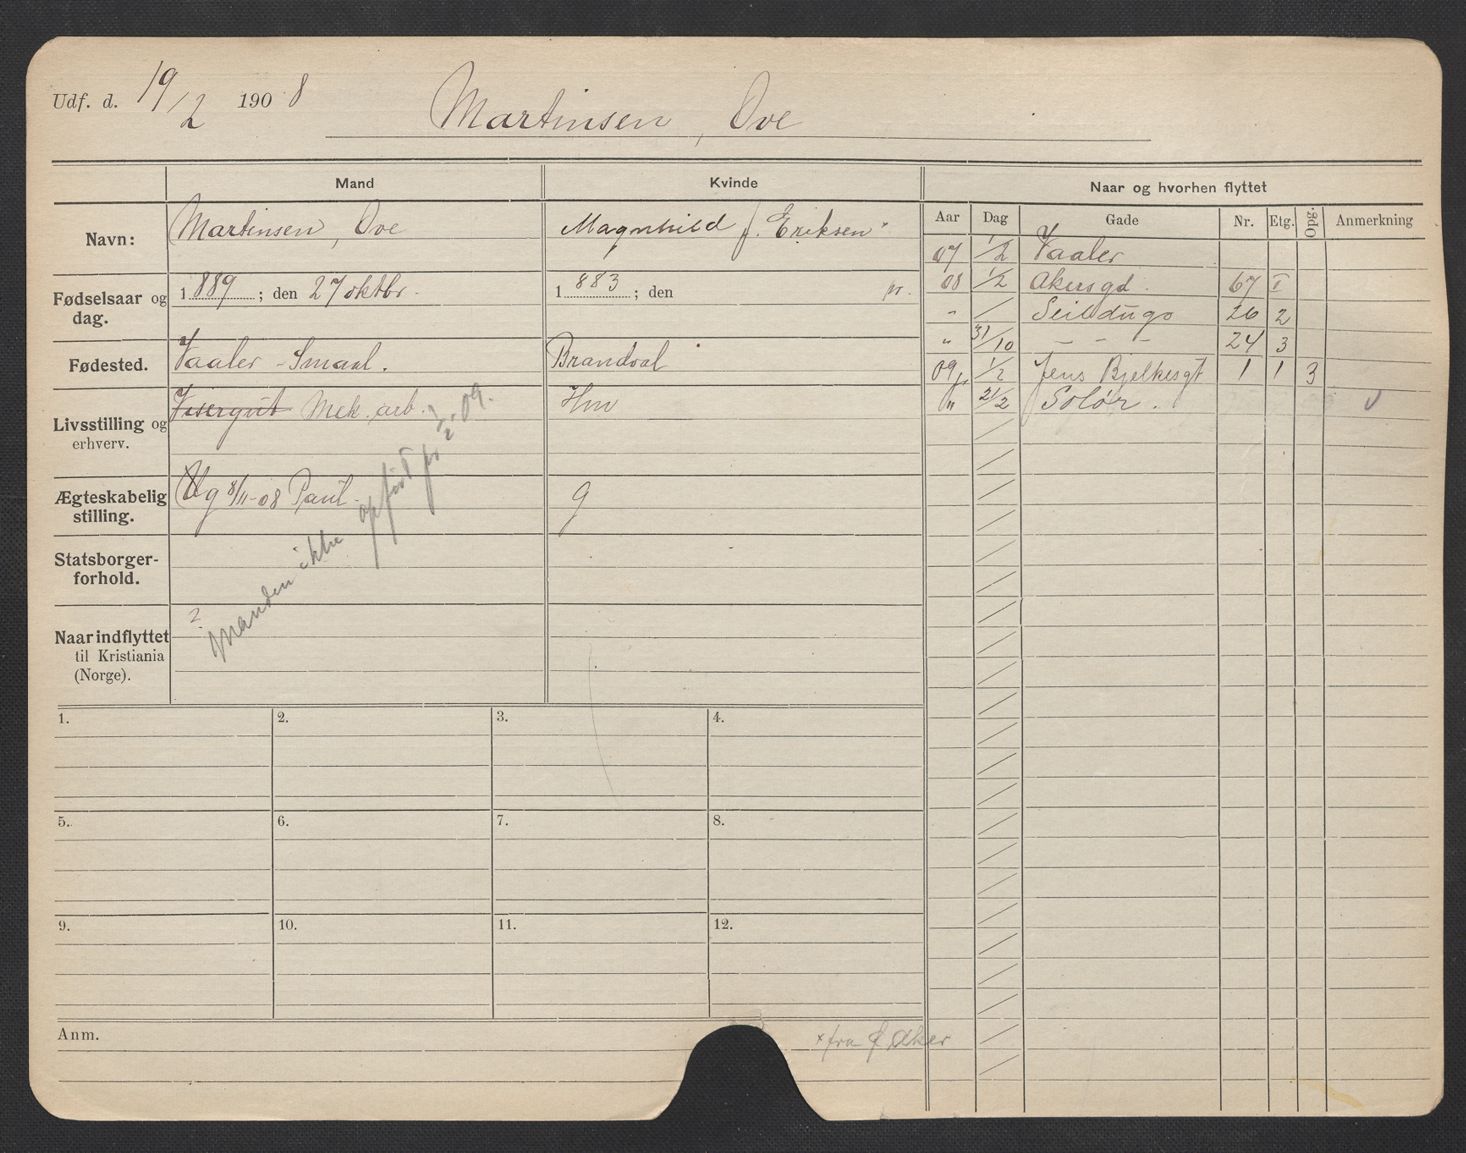 Udf. d. 19/2 1908
Martinsen, Ove
Mand
Kvinde
Naar og hvorhen flyttet
Navn:
Martinsen, Ove
Magnhild f. Eriksen
Aar Dag Gade Nr. Etg. Opg. Anmerkning
07 1/2 Vaaler
08 1/2 Akersgd. 67 I
" / Seildugs 26 2
" 31/10 – – – 24 3
09 1/2 Jens Bjelkesgt 1 1 3
" 21/2 Solör.
Fødselsaar og
dag.
1889; den 27 oktbr.
1883; den
Fødested.
Vaaler - Smaal.
Brandval
Livsstilling og
erhverv.
Visergut Mek. arb.
Hm
Ægteskabelig
stilling.
Ug 8/11-08 Paul.
g
Statsborger-
forhold.
Naar indflyttet
til Kristiania
(Norge).
?
Manden ikke opført pr 1/2-09.
1. 2. 3. 4.
5. 6. 7. 8.
9. 10. 11. 12.
Anm.
x fra f Aker